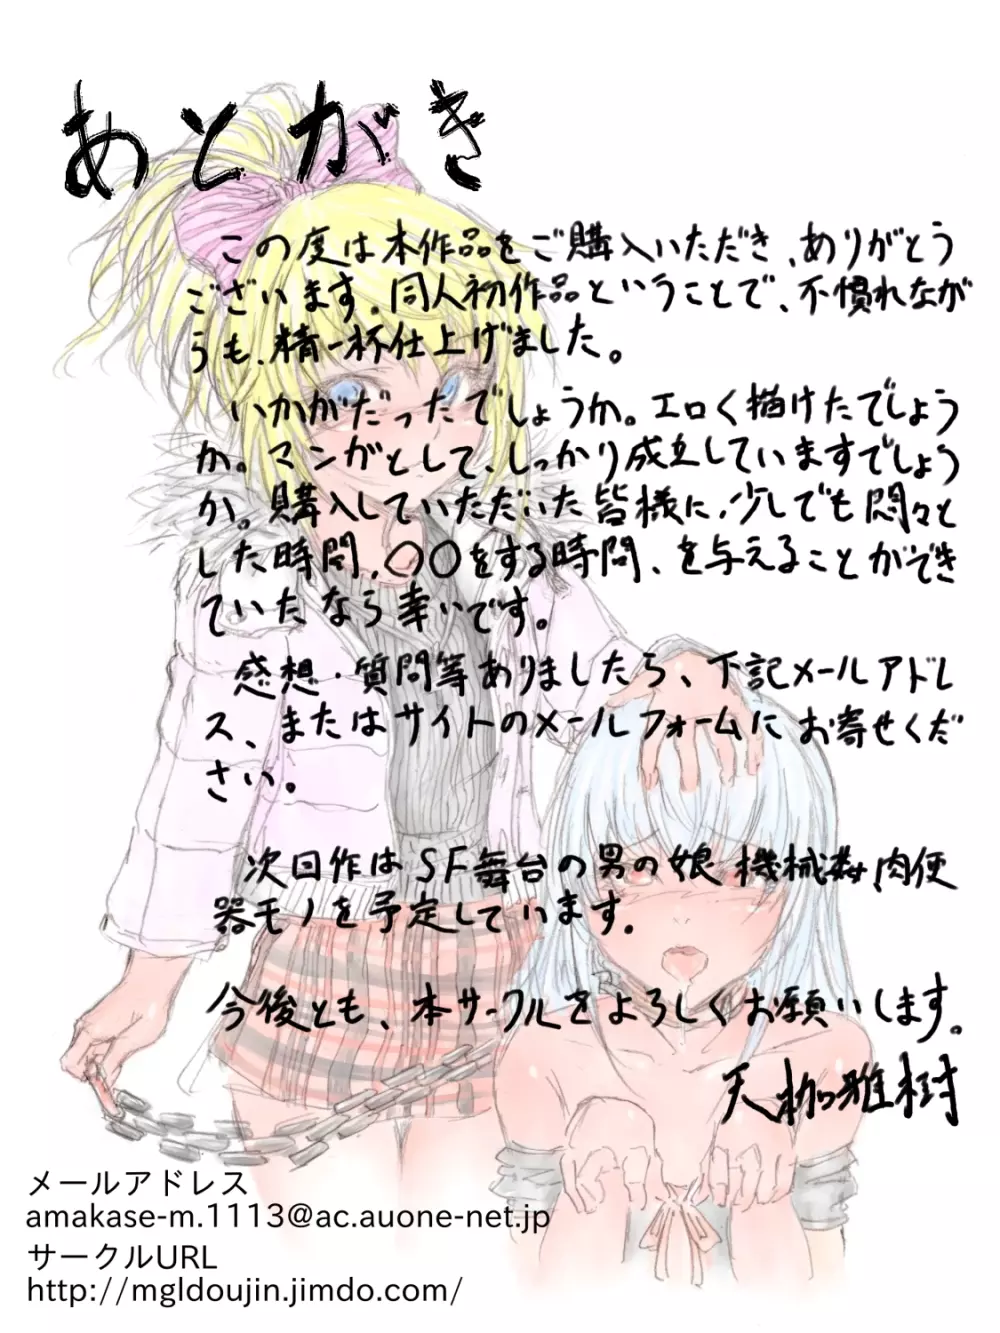 あとがき
この度は本作品をご購入いただき、ありがとう
ございます。同人初作品ということで、不慣れなが
らも、精一杯仕上げました。
いかがだったでしょうか。エロく描けたでしょう
か。マンガとして、しっかり成立していますでしょう
か。購入していただいた皆様に、少しでも悶々と
した時間、〇〇をする時間、を与えることができ
ていたなら幸いです。
感想・質問等ありましたら、下記メールアドレ
ス、またはサイトのメールフォームにお寄せくだ
さい。
次回作はSF舞台の男の娘機械姦、肉便
器モノを予定しています。
今後とも、本サークルをよろしくお願いします。
天枷雅樹
メールアドレス
amakase-m.1113@ac.auone-net.jp
サークルURL
http://mgldoujin.jimdo.com/